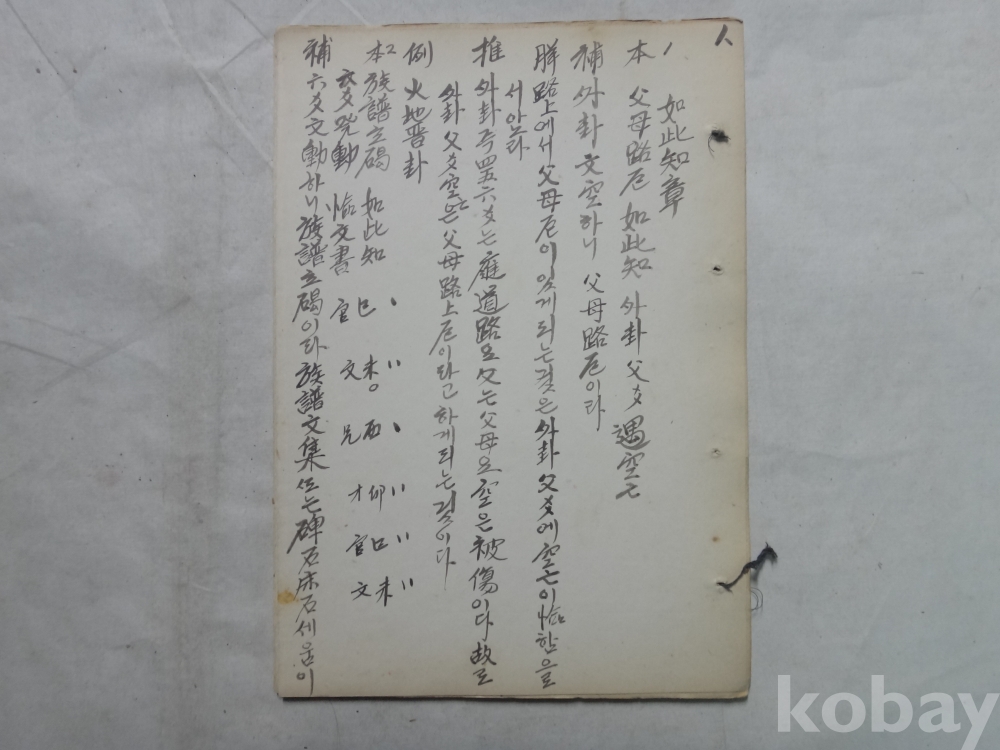 1
如此知章
本 父母路厄 如此知 外卦父爻遇空亡
補 外卦文空하니 父母路厄이라
解 路上에서 父母厄이 있게되는것은 外卦父爻에 空亡이 臨함을
서 안라
推 外卦 즉 四五六爻는 應道路요 父는 父母요 空은 被傷이다 故로
外卦父爻空亡은 父母路上厄이라고 하게되는것이다
例 火地晋卦
本2 族譜立碣 如此知
六爻発動 臨文書
官 文 兄 才 官 文
巳 未 酉 卯 巳 未
補 六爻文動하니 族譜立碣이라 族譜文集 또는 碑石床石 세움이
kobay